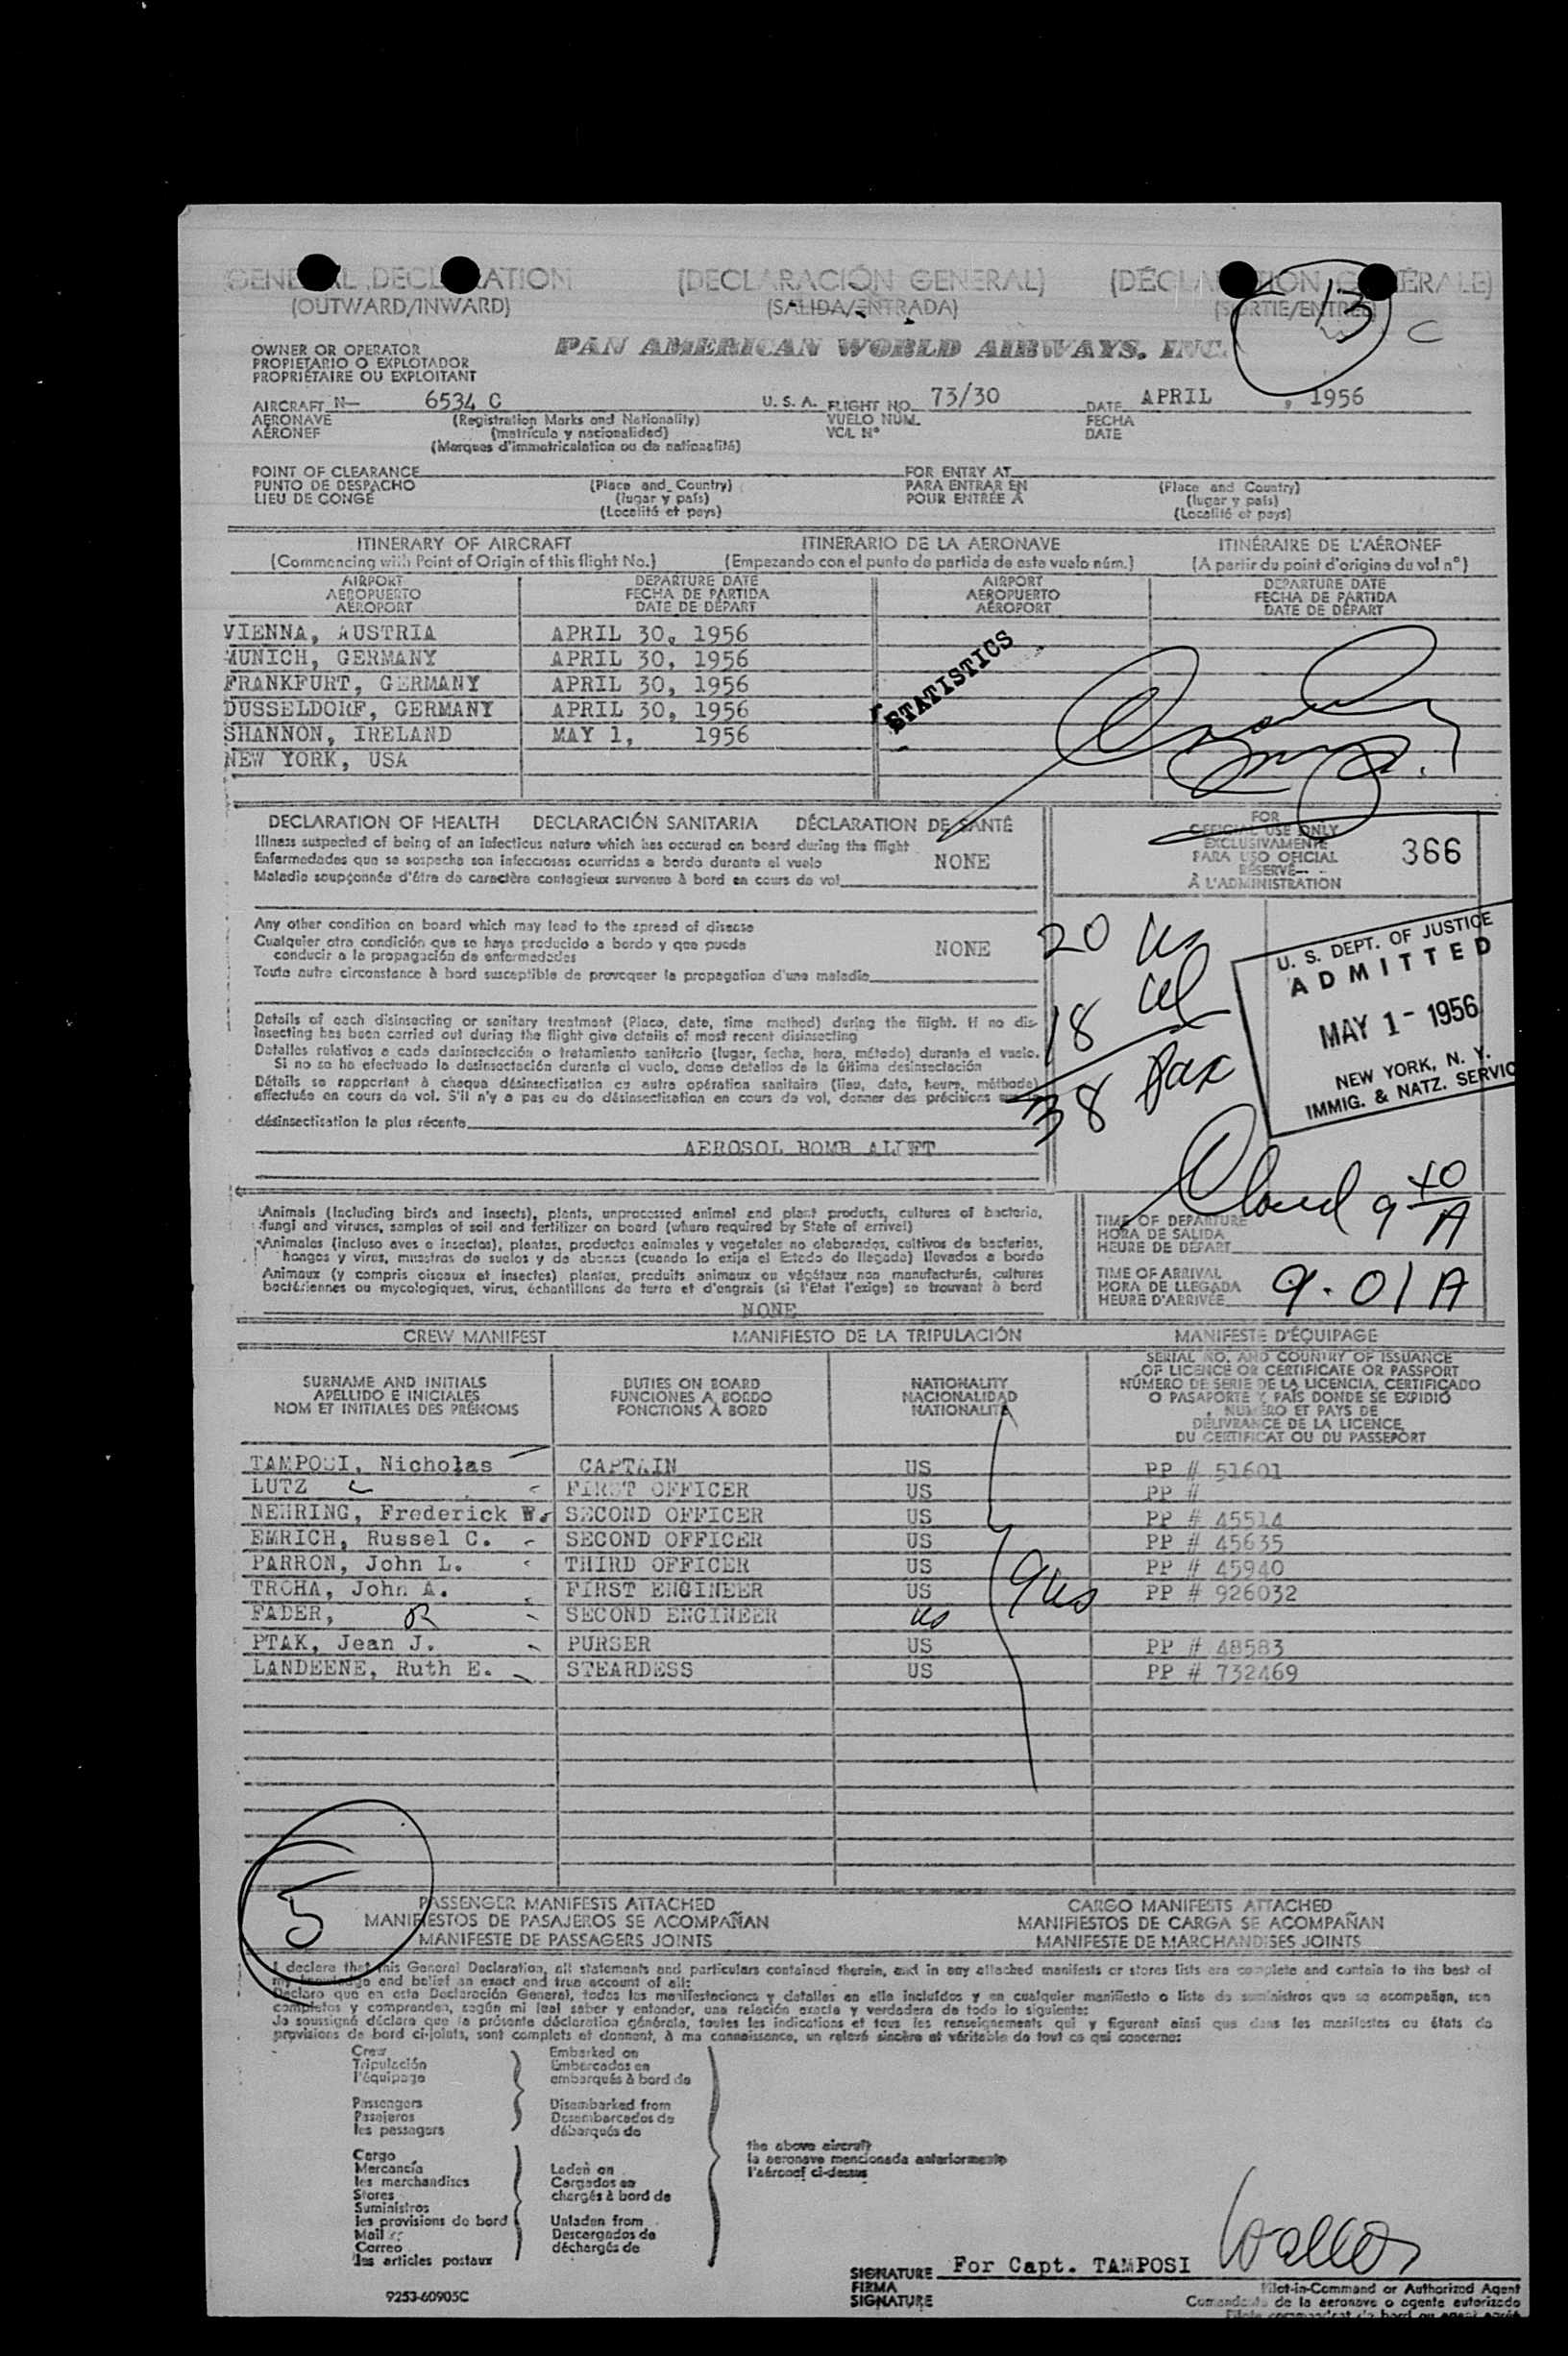 GENERAL DECLARATION (DECLARACIÓN GENERAL) (DÉCLARATION GÉNÉRALE)
(OUTWARD/INWARD) (SALIDA/ENTRADA) (SORTIE/ENTRÉE)
13 C
OWNER OR OPERATOR
PROPIETARIO O EXPLOTADOR
PROPRIÉTAIRE OU EXPLOITANT
PAN AMERICAN WORLD AIRWAYS, INC.
AIRCRAFT N— 6534 C U. S. A. FLIGHT NO. 73/30 DATE APRIL , 1956
AERONAVE (Registration Marks and Nationality) VUELO NÚM. FECHA
AÉRONEF (matrícula y nacionalidad) VOL N° DATE
(Marques d'immatriculation ou de nationalité)
POINT OF CLEARANCE FOR ENTRY AT
PUNTO DE DESPACHO (Place and Country) PARA ENTRAR EN (Place and Country)
LIEU DE CONGÉ (lugar y país) POUR ENTRÉE À (lugar y país)
(Localité et pays) (Localité et pays)
ITINERARY OF AIRCRAFT ITINERARIO DE LA AERONAVE ITINÉRAIRE DE L'AÉRONEF
(Commencing with Point of Origin of this flight No.) (Empezando con el punto de partida de este vuelo núm.) (A partir du point d'origine du vol n°)
AIRPORT DEPARTURE DATE AIRPORT DEPARTURE DATE
AEROPUERTO FECHA DE PARTIDA AEROPUERTO FECHA DE PARTIDA
AÉROPORT DATE DE DÉPART AÉROPORT DATE DE DÉPART
VIENNA, AUSTRIA APRIL 30, 1956
MUNICH, GERMANY APRIL 30, 1956
FRANKFURT, GERMANY APRIL 30, 1956
DUSSELDORF, GERMANY APRIL 30, 1956
SHANNON, IRELAND MAY 1, 1956
NEW YORK, USA
STATISTICS
DECLARATION OF HEALTH DECLARACIÓN SANITARIA DÉCLARATION DE SANTÉ
Illness suspected of being of an infectious nature which has occured on board during the flight
Enfermedades que se sospecha son infecciosas ocurridas a bordo durante el vuelo NONE
Maladie soupçonnée d'être de caractère contagieux survenue à bord en cours de vol
FOR
OFFICIAL USE ONLY
EXCLUSIVAMENTE
PARA USO OFICIAL 366
RÉSERVÉ
À L'ADMINISTRATION
Any other condition on board which may lead to the spread of disease
Cualquier otra condición que se haya producido a bordo y que pueda NONE
conducir a la propagación de enfermedades
Toute autre circonstance à bord susceptible de provoquer la propagation d'une maladie
20 us
18
38 pax
U. S. DEPT. OF JUSTICE
ADMITTED
MAY 1 - 1956
NEW YORK, N. Y.
IMMIG. & NATZ. SERVIC
Details of each disinsecting or sanitary treatment (Place, date, time method) during the flight. If no dis-
insecting has been carried out during the flight give details of most recent disinsecting
Detalles relativos a cada desinsectación o tratamiento sanitario (lugar, fecha, hora, método) durante el vuelo.
Si no se ha efectuado la desinsectación durante el vuelo, dense detalles de la última desinsectación
Détails se rapportant à chaque désinsectisation ou autre opération sanitaire (lieu, date, heure, méthode)
effectuée en cours de vol. S'il n'y a pas eu de désinsectisation en cours de vol, donner des précisions sur la
désinsectisation la plus récente
AEROSOL BOMB
Animals (including birds and insects), plants, unprocessed animal and plant products, cultures of bacteria,
fungi and viruses, samples of soil and fertilizer on board (where required by State of arrival)
Animales (incluso aves e insectos), plantas, productos animales y vegetales no elaborados, cultivos de bacterias,
hongos y virus, muestras de suelos y de abonos (cuando lo exija el Estado de llegada) llevados a bordo
Animaux (y compris oiseaux et insectes) plantes, produits animaux ou végétaux non manufacturés, cultures
bactériennes ou mycologiques, virus, échantillons de terre et d'engrais (si l'État l'exige) se trouvant à bord
NONE
9 40 A
TIME OF DEPARTURE
HORA DE SALIDA
HEURE DE DÉPART
TIME OF ARRIVAL
HORA DE LLEGADA 9.01 A
HEURE D'ARRIVÉE
CREW MANIFEST MANIFIESTO DE LA TRIPULACIÓN MANIFESTE D'ÉQUIPAGE
SURNAME AND INITIALS DUTIES ON BOARD NATIONALITY
APELLIDO E INICIALES FUNCIONES A BORDO NACIONALIDAD
NOM ET INITIALES DES PRÉNOMS FONCTIONS À BORD NATIONALITÉ
SERIAL NO. AND COUNTRY OF ISSUANCE
OF LICENCE OR CERTIFICATE OR PASSPORT
NÚMERO DE SERIE DE LA LICENCIA, CERTIFICADO
O PASAPORTE Y PAÍS DONDE SE EXPIDIÓ
NUMÉRO ET PAYS DE
DÉLIVRANCE DE LA LICENCE,
DU CERTIFICAT OU DU PASSEPORT
TAMPOSI, Nicholas CAPTAIN US PP # 51601
LUTZ FIRST OFFICER US PP #
NEHRING, Frederick W. SECOND OFFICER US PP # 45514
EMRICH, Russel C. SECOND OFFICER US PP # 45635
PARRON, John L. THIRD OFFICER US PP # 45940
TROHA, John A. FIRST ENGINEER US PP # 926032
FADER, R SECOND ENGINEER us
PTAK, Jean J. PURSER US PP # 48583
LANDEENE, Ruth E. STEARDESS US PP # 732469
9 us
5
PASSENGER MANIFESTS ATTACHED CARGO MANIFESTS ATTACHED
MANIFIESTOS DE PASAJEROS SE ACOMPAÑAN MANIFIESTOS DE CARGA SE ACOMPAÑAN
MANIFESTE DE PASSAGERS JOINTS MANIFESTE DE MARCHANDISES JOINTS
I declare that this General Declaration, all statements and particulars contained therein, and in any attached manifests or stores lists are complete and contain to the best of
my knowledge and belief an exact and true account of all:
Declaro que en esta Declaración General, todas las manifestaciones y detalles en ella incluídos y en cualquier manifiesto o lista de suministros que se acompañen, son
completos y comprenden, según mi leal saber y entender, una relación exacta y verdadera de todo lo siguiente:
Je soussigné déclare que la présente déclaration générale, toutes les indications et tous les renseignements qui y figurent ainsi que dans les manifestes ou états de
provisions de bord ci-joints, sont complets et donnent, à ma connaissance, un relevé sincère et véritable de tout ce qui concerne:
Crew Embarked on
Tripulación Embarcados en
l'équipage embarqués à bord de
Passengers Disembarked from
Pasajeros Desembarcados de
les passagers débarqués de
the above aircraft
la aeronave mencionada anteriormente
l'aéronef ci-dessus
Cargo
Mercancía Laden on
les merchandises Cargados en
Stores chargés à bord de
Suministros
les provisions de bord Unladen from
Mail Descargados de
Correo déchargés de
les articles postaux
SIGNATURE For Capt. TAMPOSI
FIRMA
SIGNATURE
Pilot-in-Command or Authorized Agent
Comandante de la aeronave o agente autorizado
9253-60905C